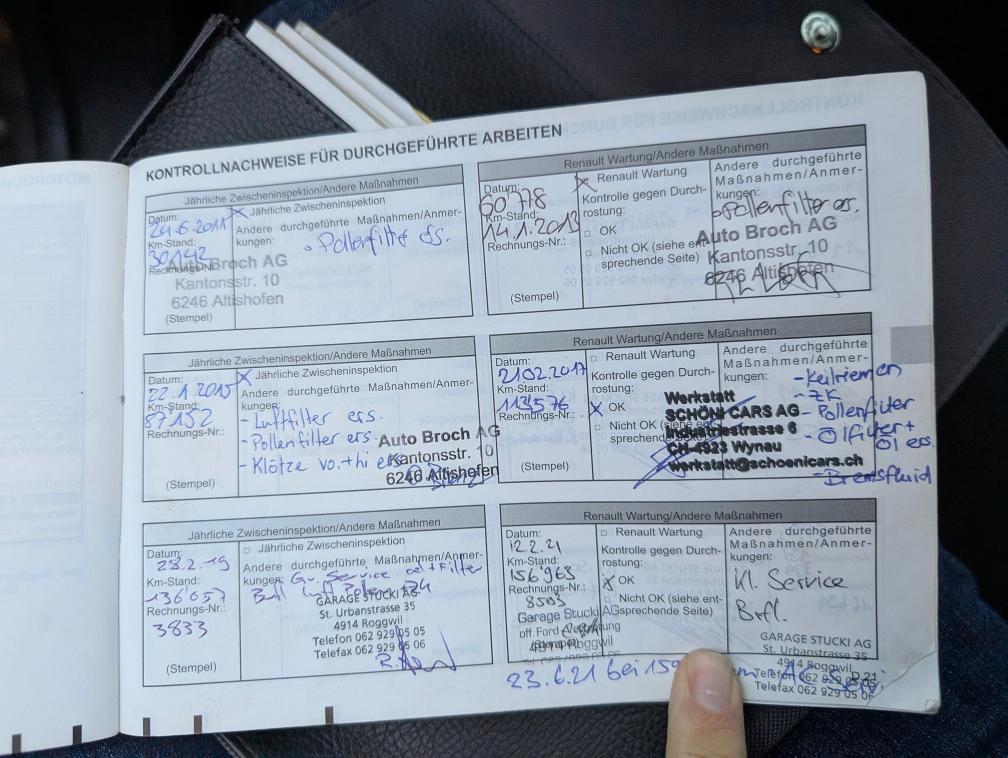 KONTROLLNACHWEISE FÜR DURCHGEFÜHRTE ARBEITEN
Jährliche Zwischeninspektion/Andere Maßnahmen
Datum:
24.6.2011
Km-Stand:
30142
Rechnungs-Nr.:
(Stempel)
Jährliche Zwischeninspektion
Andere durchgeführte Maßnahmen/Anmer-
kungen:
Pollenfilter ers.
Auto Broch AG
Kantonsstr. 10
6246 Altishofen
Renault Wartung/Andere Maßnahmen
Datum:
60'778
Km-Stand:
14.1.2013
Rechnungs-Nr.:
(Stempel)
Renault Wartung
Kontrolle gegen Durch-
rostung:
OK
Nicht OK (siehe ent-
sprechende Seite)
Andere durchgeführte
Maßnahmen/Anmer-
kungen:
Pollenfilter ers.
Auto Broch AG
Kantonsstr. 10
6246 Altishofen
Jährliche Zwischeninspektion/Andere Maßnahmen
Datum:
22.1.2015
Km-Stand:
87152
Rechnungs-Nr.:
(Stempel)
Jährliche Zwischeninspektion
Andere durchgeführte Maßnahmen/Anmer-
kungen:
- Luftfilter ers.
- Pollenfilter ers.
- Klötze vo.+hi ers.
Auto Broch AG
Kantonsstr. 10
6246 Altishofen
Renault Wartung/Andere Maßnahmen
Datum:
21.02.2017
Km-Stand:
113576
Rechnungs-Nr.:
(Stempel)
Renault Wartung
Kontrolle gegen Durch-
rostung:
OK
Nicht OK (siehe ent-
sprechende Seite)
Andere durchgeführte
Maßnahmen/Anmer-
kungen:
- Keilriemen
- ZK
- Pollenfilter
- Ölfilter +
Öl ers.
- Bremsfluid
Werkstatt
SCHÖNI CARS AG
Industriestrasse 6
CH-4923 Wynau
werkstatt@schoenicars.ch
Jährliche Zwischeninspektion/Andere Maßnahmen
Datum:
28.2.19
Km-Stand:
136'057
Rechnungs-Nr.:
3833
(Stempel)
Jährliche Zwischeninspektion
Andere durchgeführte Maßnahmen/Anmer-
kungen:
Gr. Service oel + Filter
GARAGE STUCKI AG
St. Urbanstrasse 35
4914 Roggwil
Telefon 062 929 05 05
Telefax 062 929 05 06
Renault Wartung/Andere Maßnahmen
Datum:
12.2.21
Km-Stand:
156.963
Rechnungs-Nr.:
8503
Garage Stucki AG
off. Ford
4914 Roggwil
Renault Wartung
Kontrolle gegen Durch-
rostung:
OK
Nicht OK (siehe ent-
sprechende Seite)
Andere durchgeführte
Maßnahmen/Anmer-
kungen:
Kl. Service
Brfl.
GARAGE STUCKI AG
St. Urbanstrasse 35
4914 Roggwil
Telefon 062 929 05 05
Telefax 062 929 05 06
23.6.21 bei